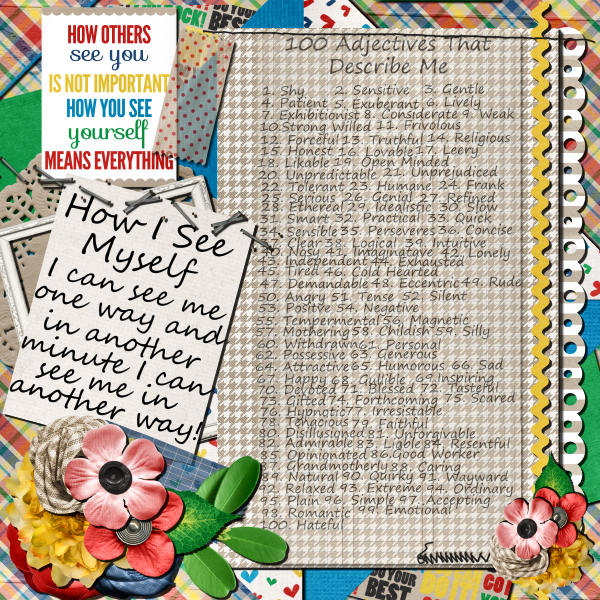 HOW OTHERS
see you
IS NOT IMPORTANT
HOW YOU SEE
yourself
MEANS EVERYTHING
How I See
Myself
I can see me
one way and
in another
minute I can
see me in
another way!
100 Adjectives That
Describe Me
1. Shy 2. Sensitive 3. Gentle
4. Patient 5. Exuberant 6. Lively
7. Exhibitionist 8. Considerate 9. Weak
10.Strong Willed 11. Frivolous
12. Forceful 13. Truthful 14. Religious
15. Honest 16. Lovable 17. Leery
18. Likable 19. Open Minded
20. Unpredictable 21. Unprejudiced
22. Tolerant 23. Humane 24. Frank
25. Serious 26. Genial 27. Refined
28. Ethereal 29. Idealistic 30. Slow
31. Smart 32. Practical 33. Quick
34. Sensible 35. Perseveres 36. Concise
37. Clear 38. Logical 39. Intuitive
40. Nosy 41. Imaginatave 42. Lonely
43. Independent 44. Exhausted
45. Tired 46. Cold Hearted
47. Demandable 48. Eccentric 49. Rude
50. Angry 51. Tense 52. Silent
53. Positve 54. Negative
55. Tempermental 56. Magnetic
57. Mothering 58. Childish 59. Silly
60. Withdrawn 61. Personal
62. Possessive 63. Generous
64. Attractive 65. Humorous 66. Sad
67. Happy 68. Gullible 69. Inspiring
70. Devoted 71. Blessed 72. Tasteful
73. Gifted 74. Forthcoming 75. Scared
76. Hypnotic 77. Irresistable
78. Tenacious 79. Faithful
80. Disillusioned 81. Unforgivable
82. Admirable 83. Ligable 84. Resentful
85. Opinionated 86.Good Worker
87. Grandmotherly 88. Caring
89. Natural 90. Quirky 91. Wayward
92. Relaxed 93. Extreme 94. Ordinary
95. Plain 96. Simple 97. Accepting
98. Romantic 99. Emotional
100. Hateful
DO YOUR
BEST